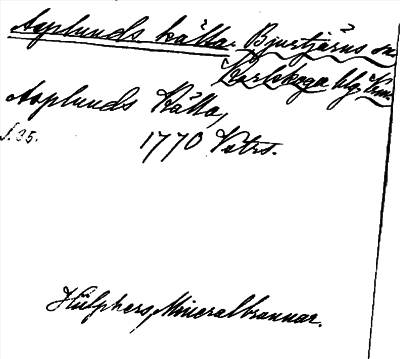 Asplunds källa. Bjurtjärns sn
Karlskoga blg Vrm.
Asplunds Källa,
s. 35. 1770 Vetrs.
Hülphers, Mineralbrunnar.